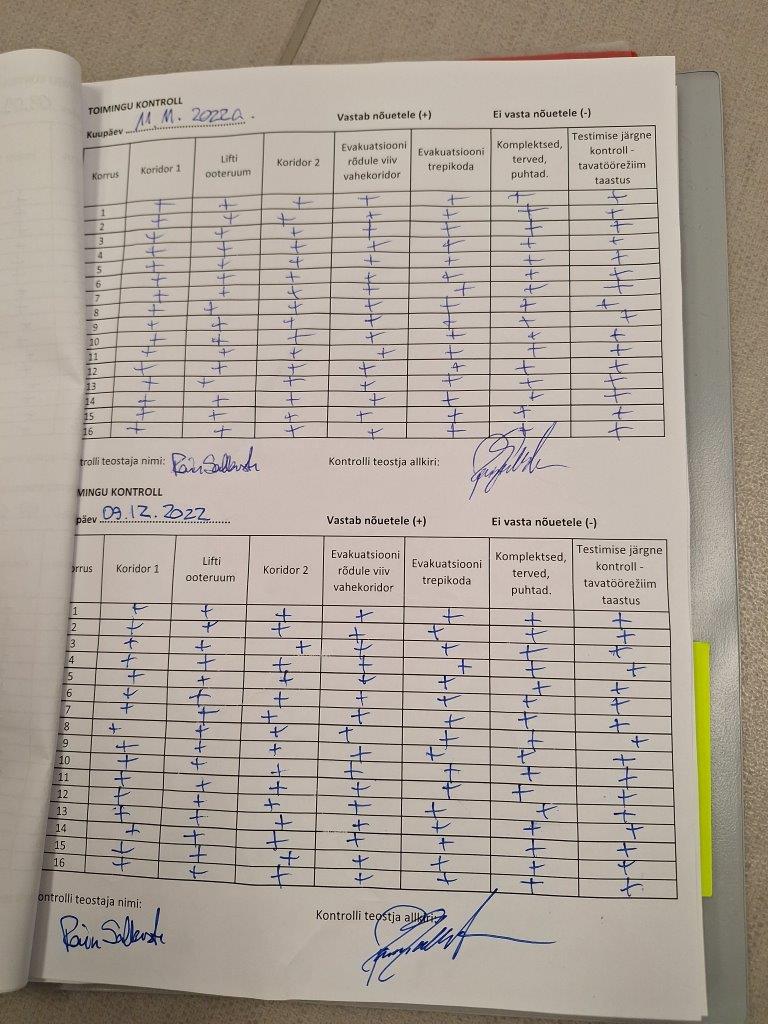 TOIMINGU KONTROLL
Kuupäev 11.11.2022a. Vastab nõuetele (+) Ei vasta nõuetele (-)
Korrus Koridor 1 Lifti ooteruum Koridor 2 Evakuatsiooni rõdule viiv vahekoridor Evakuatsiooni trepikoda Komplektsed, terved, puhtad. Testimise järgne kontroll - tavatöörežiim taastus
+ + + + + + +
1 + + + + + + +
2 + + + + + + +
3 + + + + + + +
4 + + + + + + +
5 + + + + + + +
6 + + + + + + +
7 + + + + + + +
8 + + + + + + +
9 + + + + + + +
10 + + + + + + +
11 + + + + + + +
12 + + + + + + +
13 + + + + + + +
14 + + + + + + +
15 + + + + + + +
16
trolli teostaja nimi: Kontrolli teostja allkiri:
MINGU KONTROLL
päev 09.12.2022 Vastab nõuetele (+) Ei vasta nõuetele (-)
rrus Koridor 1 Lifti ooteruum Koridor 2 Evakuatsiooni rõdule viiv vahekoridor Evakuatsiooni trepikoda Komplektsed, terved, puhtad. Testimise järgne kontroll - tavatöörežiim taastus
1 + + + + + + +
2 + + + + + + +
3 + + + + + + +
4 + + + + + + +
5 + + + + + + +
6 + + + + + + +
7 + + + + + + +
8 + + + + + + +
9 + + + + + + +
10 + + + + + + +
11 + + + + + + +
12 + + + + + + +
13 + + + + + + +
14 + + + + + + +
15 + + + + + + +
16 + + + + + + +
ontrolli teostaja nimi: Kontrolli teostja allkiri: